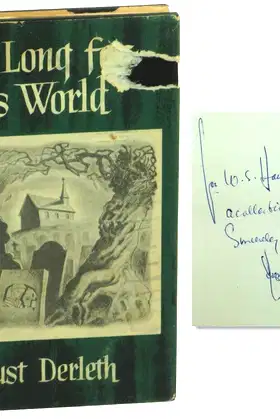 Long f
s World
ust Derleth
for W. S. Ha
a collecti
Sincerely